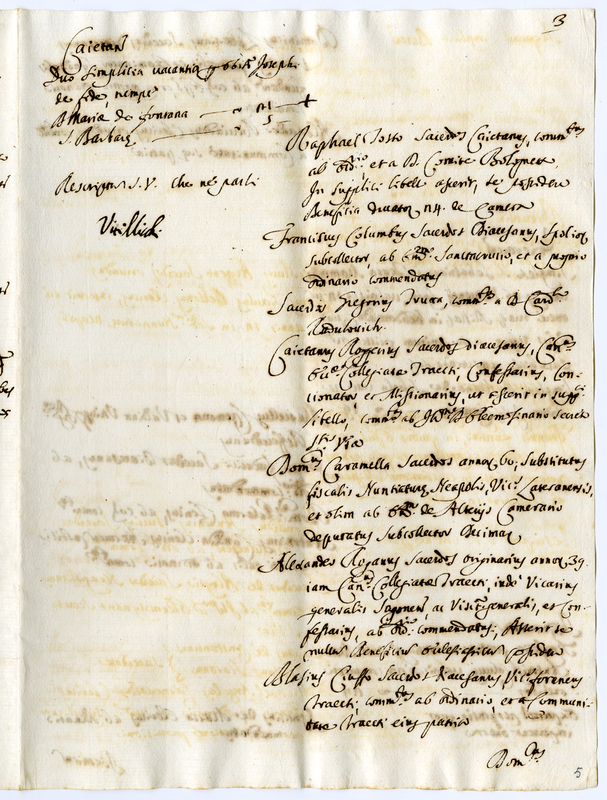 3
Caietan
Duo simplicia vacantia per obitum Joseph
de fide, nempe
B. Mariæ de fontana
S. Barbaræ
Rescriptum S. V. che ne parli
Raphael Tosto Sacerdos Caietanus, comm.tus
ab Ord.rio et a D. Comite Bolognetti
In supplici libello asserit, se possidere
Beneficia ducator. 24. de Camera
Franciscus Columbus Sacerdos Diæcesanus, spolior.
subcollector, ab Em.mo Sanctacrucio, et a proprio
Ordinario commendatus
Sacerdos Gregorius comm.tus a D. Card.
Radulovich.
Caietanus Rogerius Sacerdos diæcesanus, Can.cus
Collegiatæ Traecti, Confessarius, Con-
cionator et Missionarius, ut asserit in supp.
libello, comm.tus ab Ill.mo D. Eleemosinario Secreto
S.tis V.ræ
Dom.cus Caramella Sacerdos annor. 60. Substitutus
fiscalis Nuntiaturæ Neapolis, Vic.s Lateranensis,
et olim ab Em. de Alterijs Camerario
deputatus Subcollector Decimar.
Alexander Roganus Sacerdos originarius annor. 39.
iam Can.cus Collegiatæ Traecti, inde Vicarius
generalis ac Visit.r generalis, et Con-
fessarius, ab Ord. commendatus, Asserit se
nullum Beneficium ecclesiasticum possidere
Blasius Ciuffo Sacerdos diæcesanus Vic.s foraneus
Traecti, comm.tus ab ordinario et a Communi-
tate Traecti eius patria
Dom.cus
5